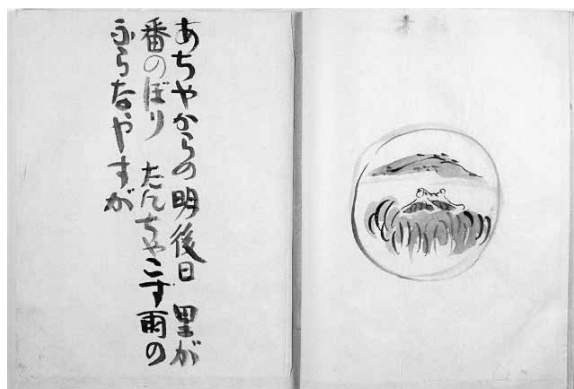 あちやからの明後日 里が
番のぼり たんちやこす雨の
ふらなやすが